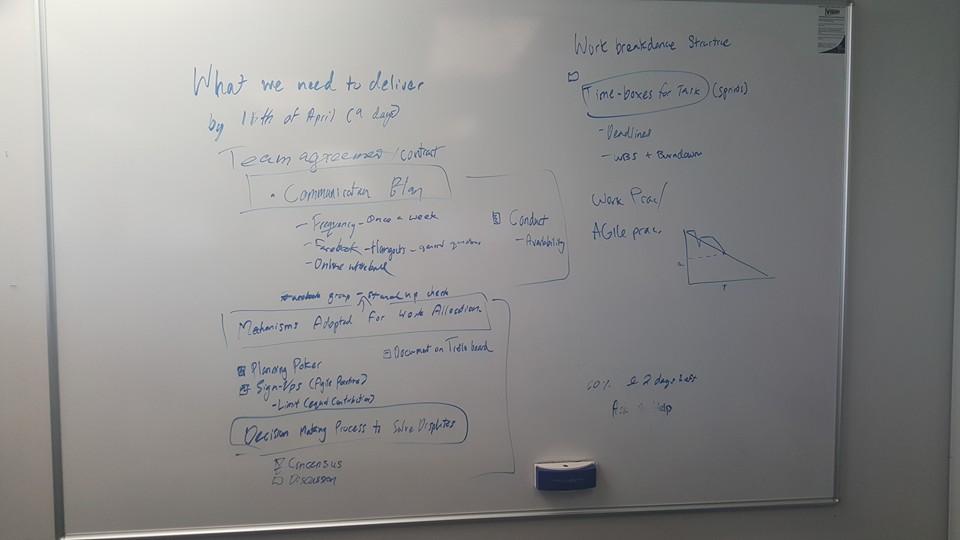 What we need to deliver
by 11th of April (9 days)
Team agreement / contract
• Communication Plan
- Frequency - Once a week
- Facebook - Hangouts - general questions
- Online
Facebook group - stand up check
Conduct
- Availability
Mechanisms Adopted For Work Allocation
Planning Poker
Document on Trello board
Sign-Ups (Agile Practice)
- Limit (equal contribution)
Decision Making Process to Solve Disputes
Concensus
Discussion
Work breakdence Structure
Time-boxes for Task (sprints)
- Deadlines
- WBS + Burndown
Work Prac/
AGile prac.
T
60% & 2 days left
Ask Help